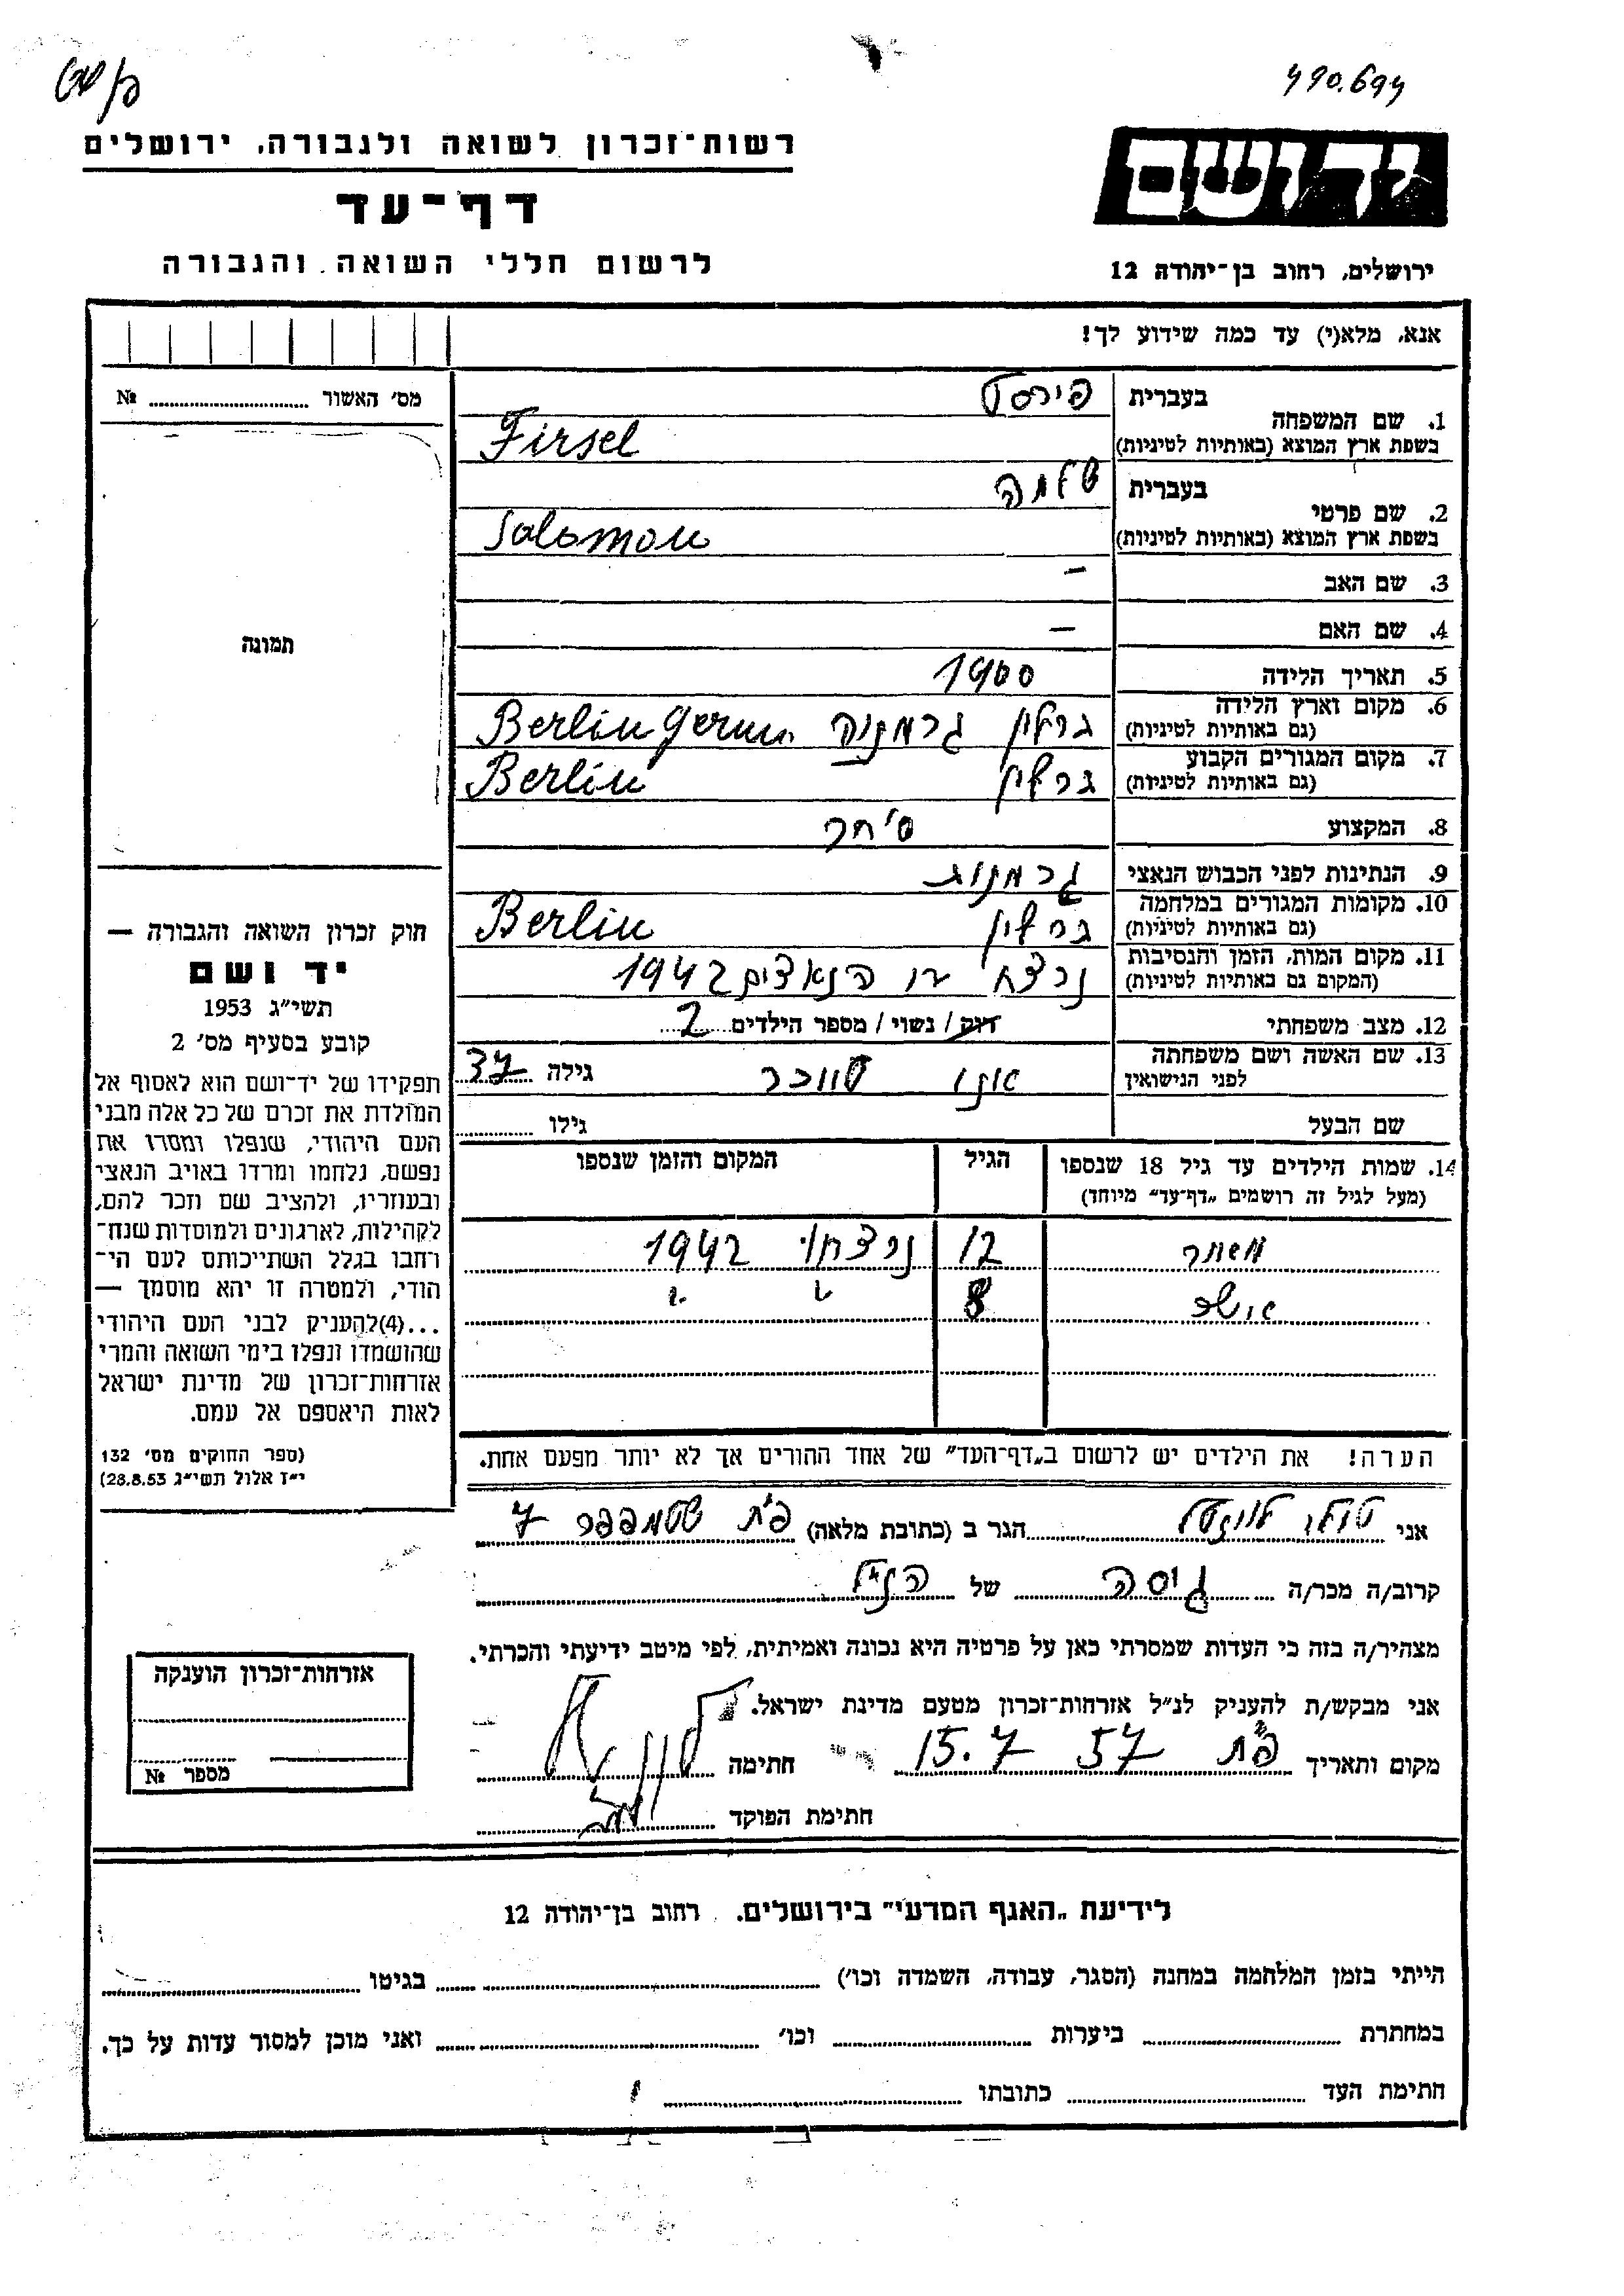 490.694
רשות־זכרון לשואה ולגבורה, ירושלים
יד ושם
דף־עד
לרשום חללי השואה והגבורה
ירושלים, רחוב בן־יהודה 12
אנא, מלא(י) עד כמה שידוע לך!
מס׳ האשור № 
1. שם המשפחה
בעברית פירסל
בשפת ארץ המוצא (באותיות לטיניות) Firsel
2. שם פרטי
בעברית שלמה
בשפת ארץ המוצא (באותיות לטיניות) Salomon
3. שם האב –
4. שם האם –
5. תאריך הלידה 1900
6. מקום וארץ הלידה
(גם באותיות לטיניות) ברלין גרמניה Berlin Germ.
7. מקום המגורים הקבוע
(גם באותיות לטיניות) ברלין Berlin
8. המקצוע סוחר
9. הנתינות לפני הכבוש הנאצי גרמנית
10. מקומות המגורים במלחמה
(גם באותיות לטיניות) ברלין Berlin
11. מקום המות, הזמן והנסיבות
(המקום גם באותיות לטיניות) נרצח ע״י הנאצים 1942
12. מצב משפחתי רווק / נשוי / מספר הילדים 2
13. שם האשה ושם משפחתה
לפני הנישואין גילה 37
שם הבעל גילו
14. שמות הילדים עד גיל 18 שנספו
(מעל לגיל זה רושמים „דף־עד״ מיוחד)
הגיל
המקום והזמן שנספו
12 נרצחו 1942
8 " "
הערה! את הילדים יש לרשום ב„דף־העד״ של אחד ההורים אך לא יותר מפעם אחת.
תמונה
חוק זכרון השואה והגבורה —
יד ושם
תשי״ג 1953
קובע בסעיף מס׳ 2
תפקידו של יד־ושם הוא לאסוף אל
המולדת את זכרם של כל אלה מבני
העם היהודי, שנפלו ומסרו את
נפשם, נלחמו ומרדו באויב הנאצי
ובעוזריו, ולהציב שם וזכר להם,
לקהילות, לארגונים ולמוסדות שנח־
רבו בגלל השתייכותם לעם הי־
הודי, ולמטרה זו יהא מוסמך —
...(4)להעניק לבני העם היהודי
שהושמדו ונפלו בימי השואה והמרי
אזרחות־זכרון של מדינת ישראל
לאות היאספם אל עמם.
(ספר החוקים מס׳ 132
י״ז אלול תשי״ג 28.8.53)
אני הגר ב (כתובת מלאה) פ״ת שטמפפר 7
קרוב/ה מכר/ה גיסה של הנ״ל
מצהיר/ה בזה כי העדות שמסרתי כאן על פרטיה היא נכונה ואמיתית, לפי מיטב ידיעתי והכרתי.
אני מבקש/ת להעניק לנ״ל אזרחות־זכרון מטעם מדינת ישראל.
מקום ותאריך פ״ת 15.7 57 חתימה
חתימת הפוקד
אזרחות־זכרון הוענקה
מספר №
לידיעת „האגף המדעי״ בירושלים. רחוב בן־יהודה 12
הייתי בזמן המלחמה במחנה (הסגר, עבודה, השמדה וכו׳) בגיטו
במחתרת ביערות וכו׳ ואני מוכן למסור עדות על כך.
חתימת העד כתובתו